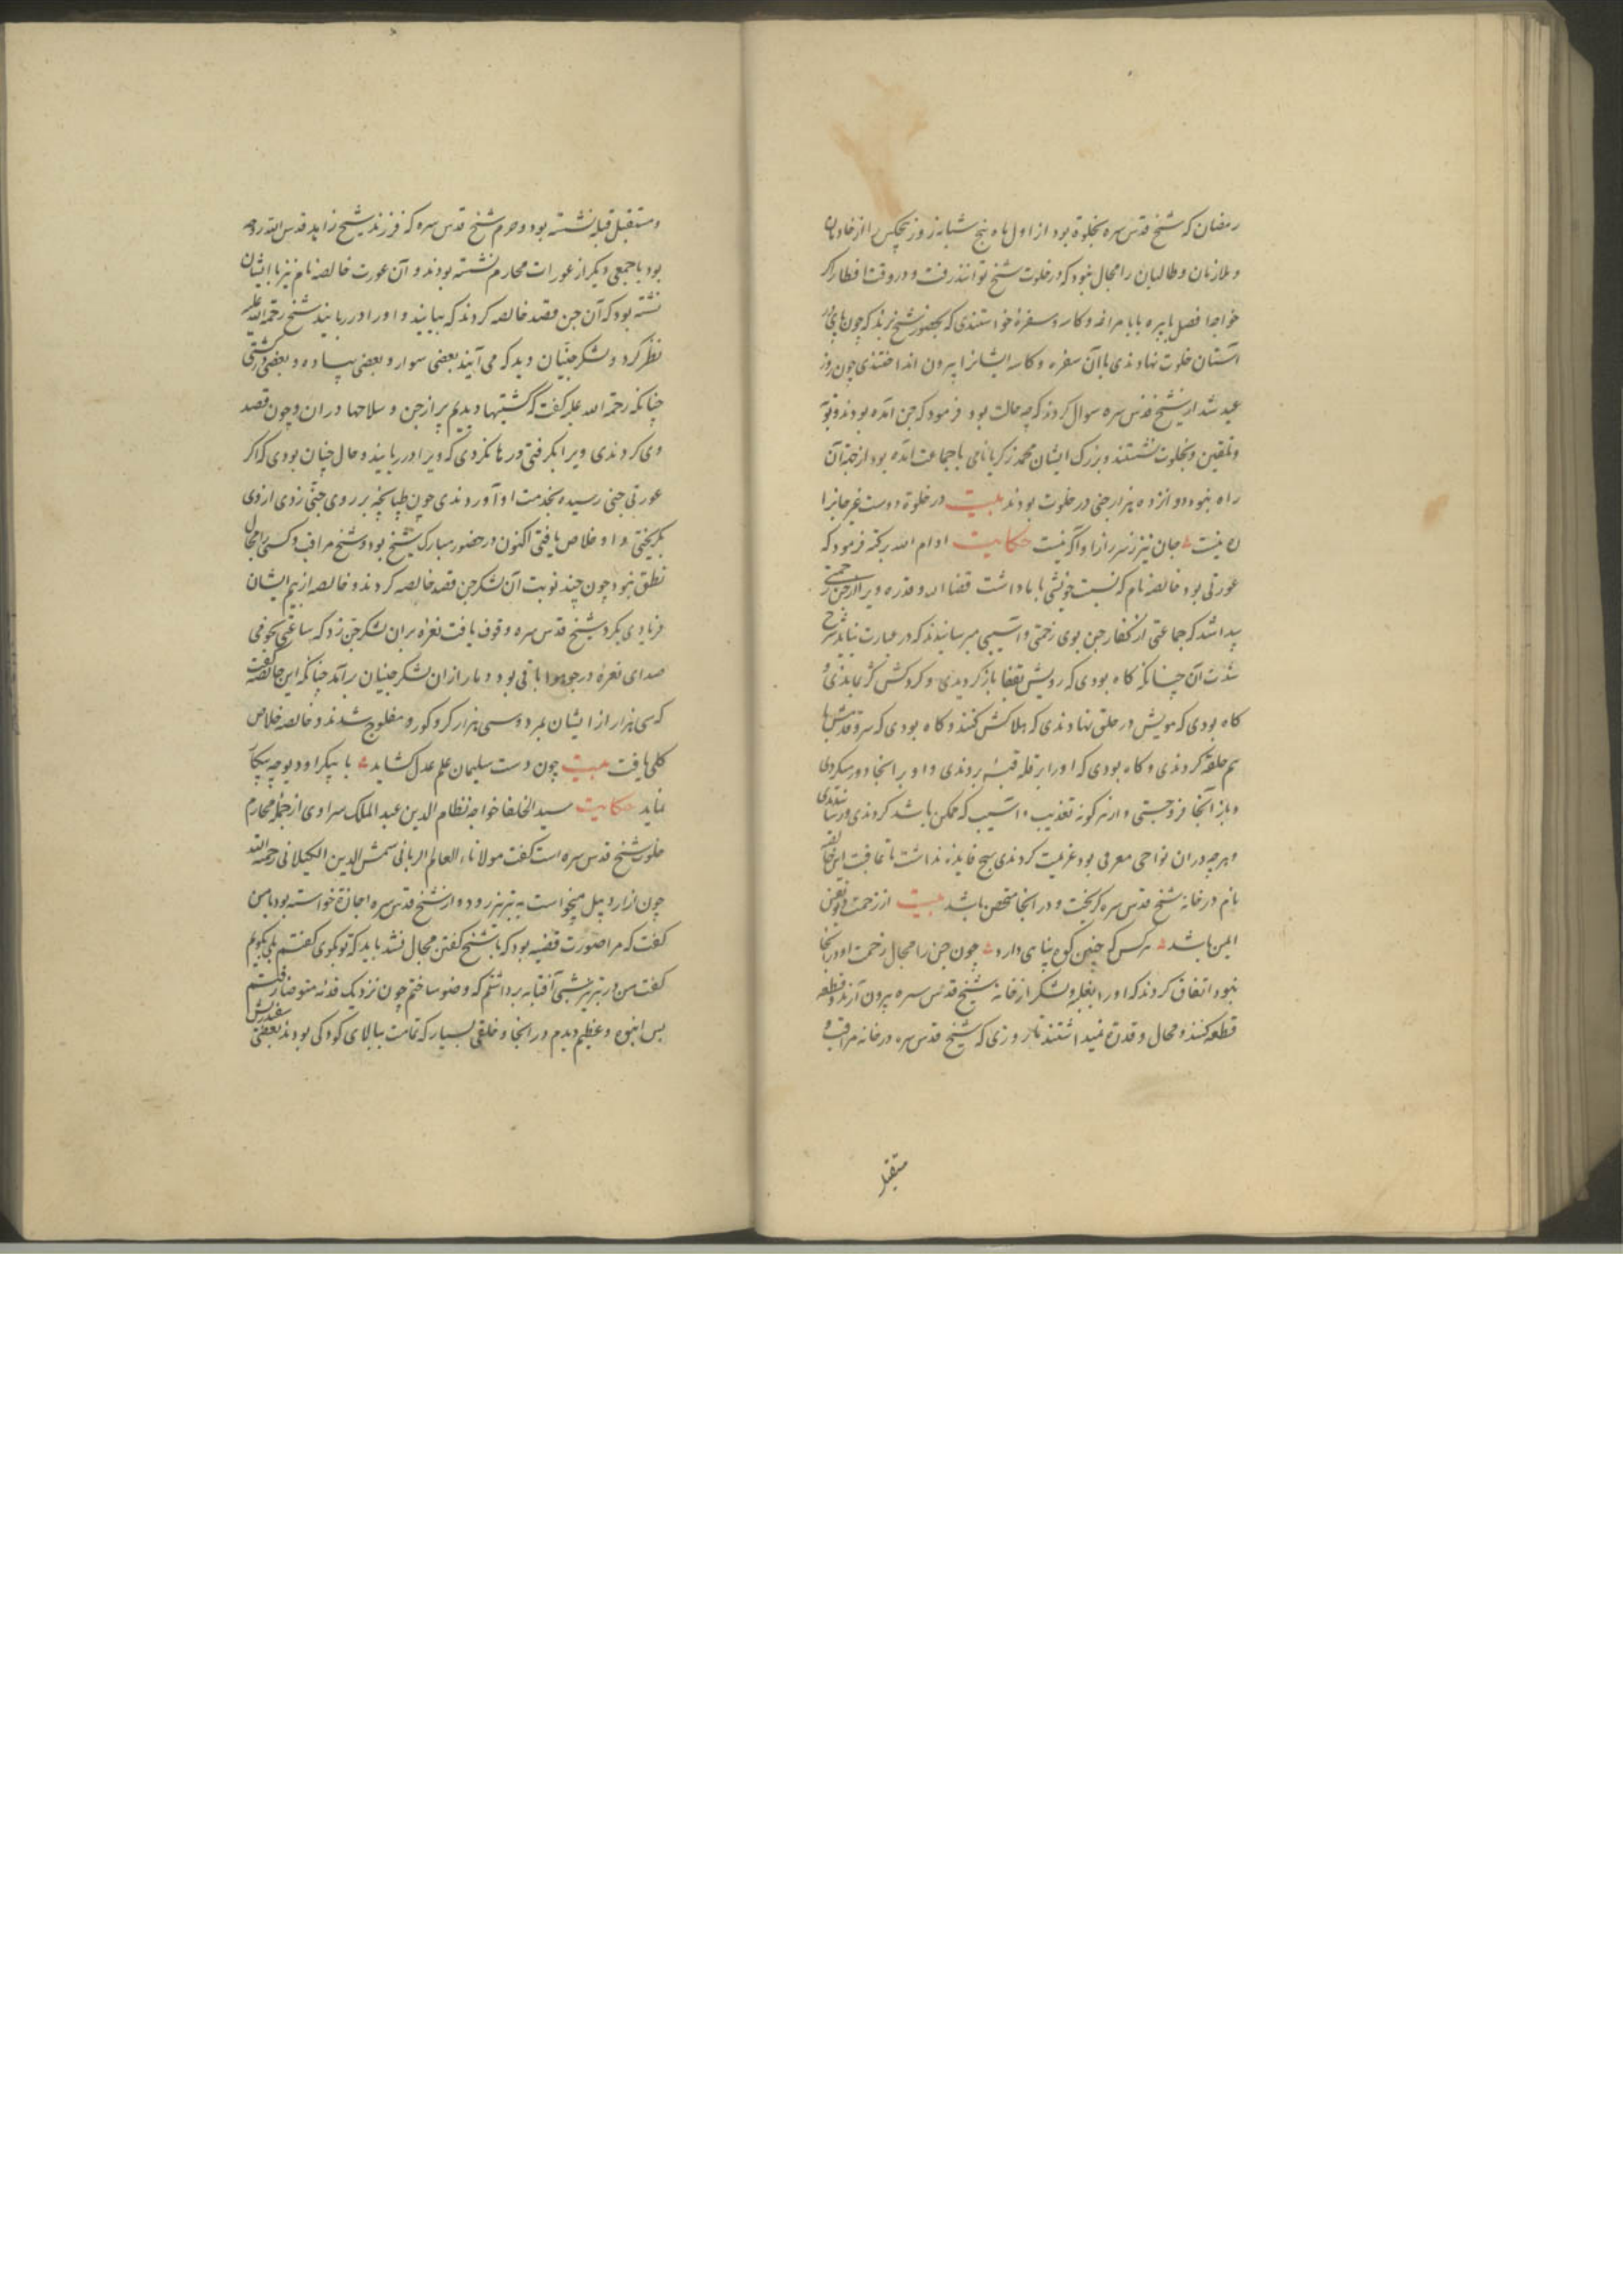 رمضان که شیخ قدس سره بخلوة بود از اول ماه پنج شبانه روز هیچکس را از خادمان
و ملازمان و طالبان را مجال نبود که در خلوت شیخ توانند رفت و در وقت افطار اکر
خواجا فضل یا پیره بابا مراغه و کاسه و سفرۀ خواستندی که بحضور شیخ برند که چون پای در
آستان خلوت نهادندی با آن سفره و کاسه ایشانرا بیرون انداختندی چون روز
عید شد از شیخ قدس سره سوال کردند که چه حالت بود فرمود که جن آمده بودند و توبه
و تلقین و بخلوت نشستند و بزرک ایشان محمد زکریا نامی با جماعت آمده بود از جنّه آن
راه نبود دوانزده هزار جنی در خلوت بودند بیت در خلوة دوست غیر جانرا
ره نیست جان نیز ز سر راز او آکه نیست حکایت ادام الله برکته فرمود که
عورتی بود خالصه نام که نسبت خویشی با ما داشت قضا الله و قدره ویرا از جن زحمتی
پیدا شد که جماعتی از کفار جن بوی زحمتی و آسیبی میرسانیدند که در عبارت نیاید شرح
شدت آن چنانکه کاه بودی که رویش بقفا باز کردیدی و کردنش کژ بماندی و
کاه بودی که مویش در حلق نهادندی که هلاکش کنند و کاه بودی که سر و قدمش با
هم حلقه کردندی و کاه بودی که او را بر قله قبۀ بردندی و او بر آنجا دور میکردی
و باز آنجا فروجستی و از هر کونه تعذیب و آسیب که ممکن باشد کردندی و رسانیدندی
و هر چه در آن نواحی معرفی بود عزیمت کردندی هیچ فایده نداشت تا عاقبت این خالصه
نام در خانه شیخ قدس سره کریخت و در آنجا متحصن باشد بیت از زحمت
ایمن باشد هر کس که چنین کوه پناهی دارد چون جن را مجال زحمت او در آنجا
نبود اتفاق کردند که او را بغلبه و لشکر از خانه شیخ قدس سره بیرون آرند و قطعه
قطعه کنند و مجال و قدرة نمیداشتند تا روزی که شیخ قدس سره در خانه مراقب و
مستقبل
و مستقبل قبله نشسته بود و حرم شیخ قدس سره که فرزند شیخ زاهد قدس الله روحه
بود با جمعی دیکر از عورات محارم نشسته بودند و آن عورت خالصه نام نیز با ایشان
نشسته بود که آن جن قصد خالصه کردند که بیایند و او را در ربایند شیخ رحمة الله علیه
نظر کرد و لشکر جنّیان دید که می آیند بعضی سوار و بعضی پیاده و بعضی در کشتی
چنانکه رحمة الله علیه کفت که کشتیها دیدم پر از جن و سلاحها در آن و چون قصد
وی کردندی ویرا بکرفتی و رها نکردی که ویرا در ربایند و حال چنان بودی که اکر
عورتی جنی رسیده بخدمت او آوردندی چون طپانچه بر روی جنّی زدی از وی
بکریختی و او خلاص یافتی اکنون در حضور مبارک شیخ بود و شیخ مراقب و کسی را مجال
نطق نبود چون چند نوبت آن لشکر جن قصد خالصه کردند و خالصه از بیم ایشان
فریادی بکرد شیخ قدس سره وقوف یافت نعرۀ بر آن لشکر جن زد که ساعتی نجومی
صدای نعرۀ در جو هوا باقی بود و دمار از آن لشکر جنیان برآمد چنانکه این خالصه کفت
که سی هزار از ایشان بمرد و سی هزار کر و کور و مفلوج شدند و خالصه خلاص
کلی یافت بیت چون دست سلیمان علم عدل کشاید با پیکر او دیو چه پیکار
نماید حکایت سید الخلفا خواجه نظام الدین عبد الملک سراوی از جمله محارم
خلوة شیخ قدس سره است کفت مولانا العالم الربانی شمس الدین الکیلانی رحمه الله
چون از اردبیل میخواست به تبریز رود و از شیخ قدس سره اجازة خواسته بود با من
کفت که مرا صورت قضیه بود که با شیخ کفتن مجال نشد باید که تو بکوی کفتم بلی بکویم
کفت من در تبریز شبی آفتابه برداشتم که وضو سازم چون نزدیک قدمه متوضا رفتم
بس انبوه و عظیم دیدم در آنجا و خلقی بسیار که قامت ببالای کودکی بودند بعضی